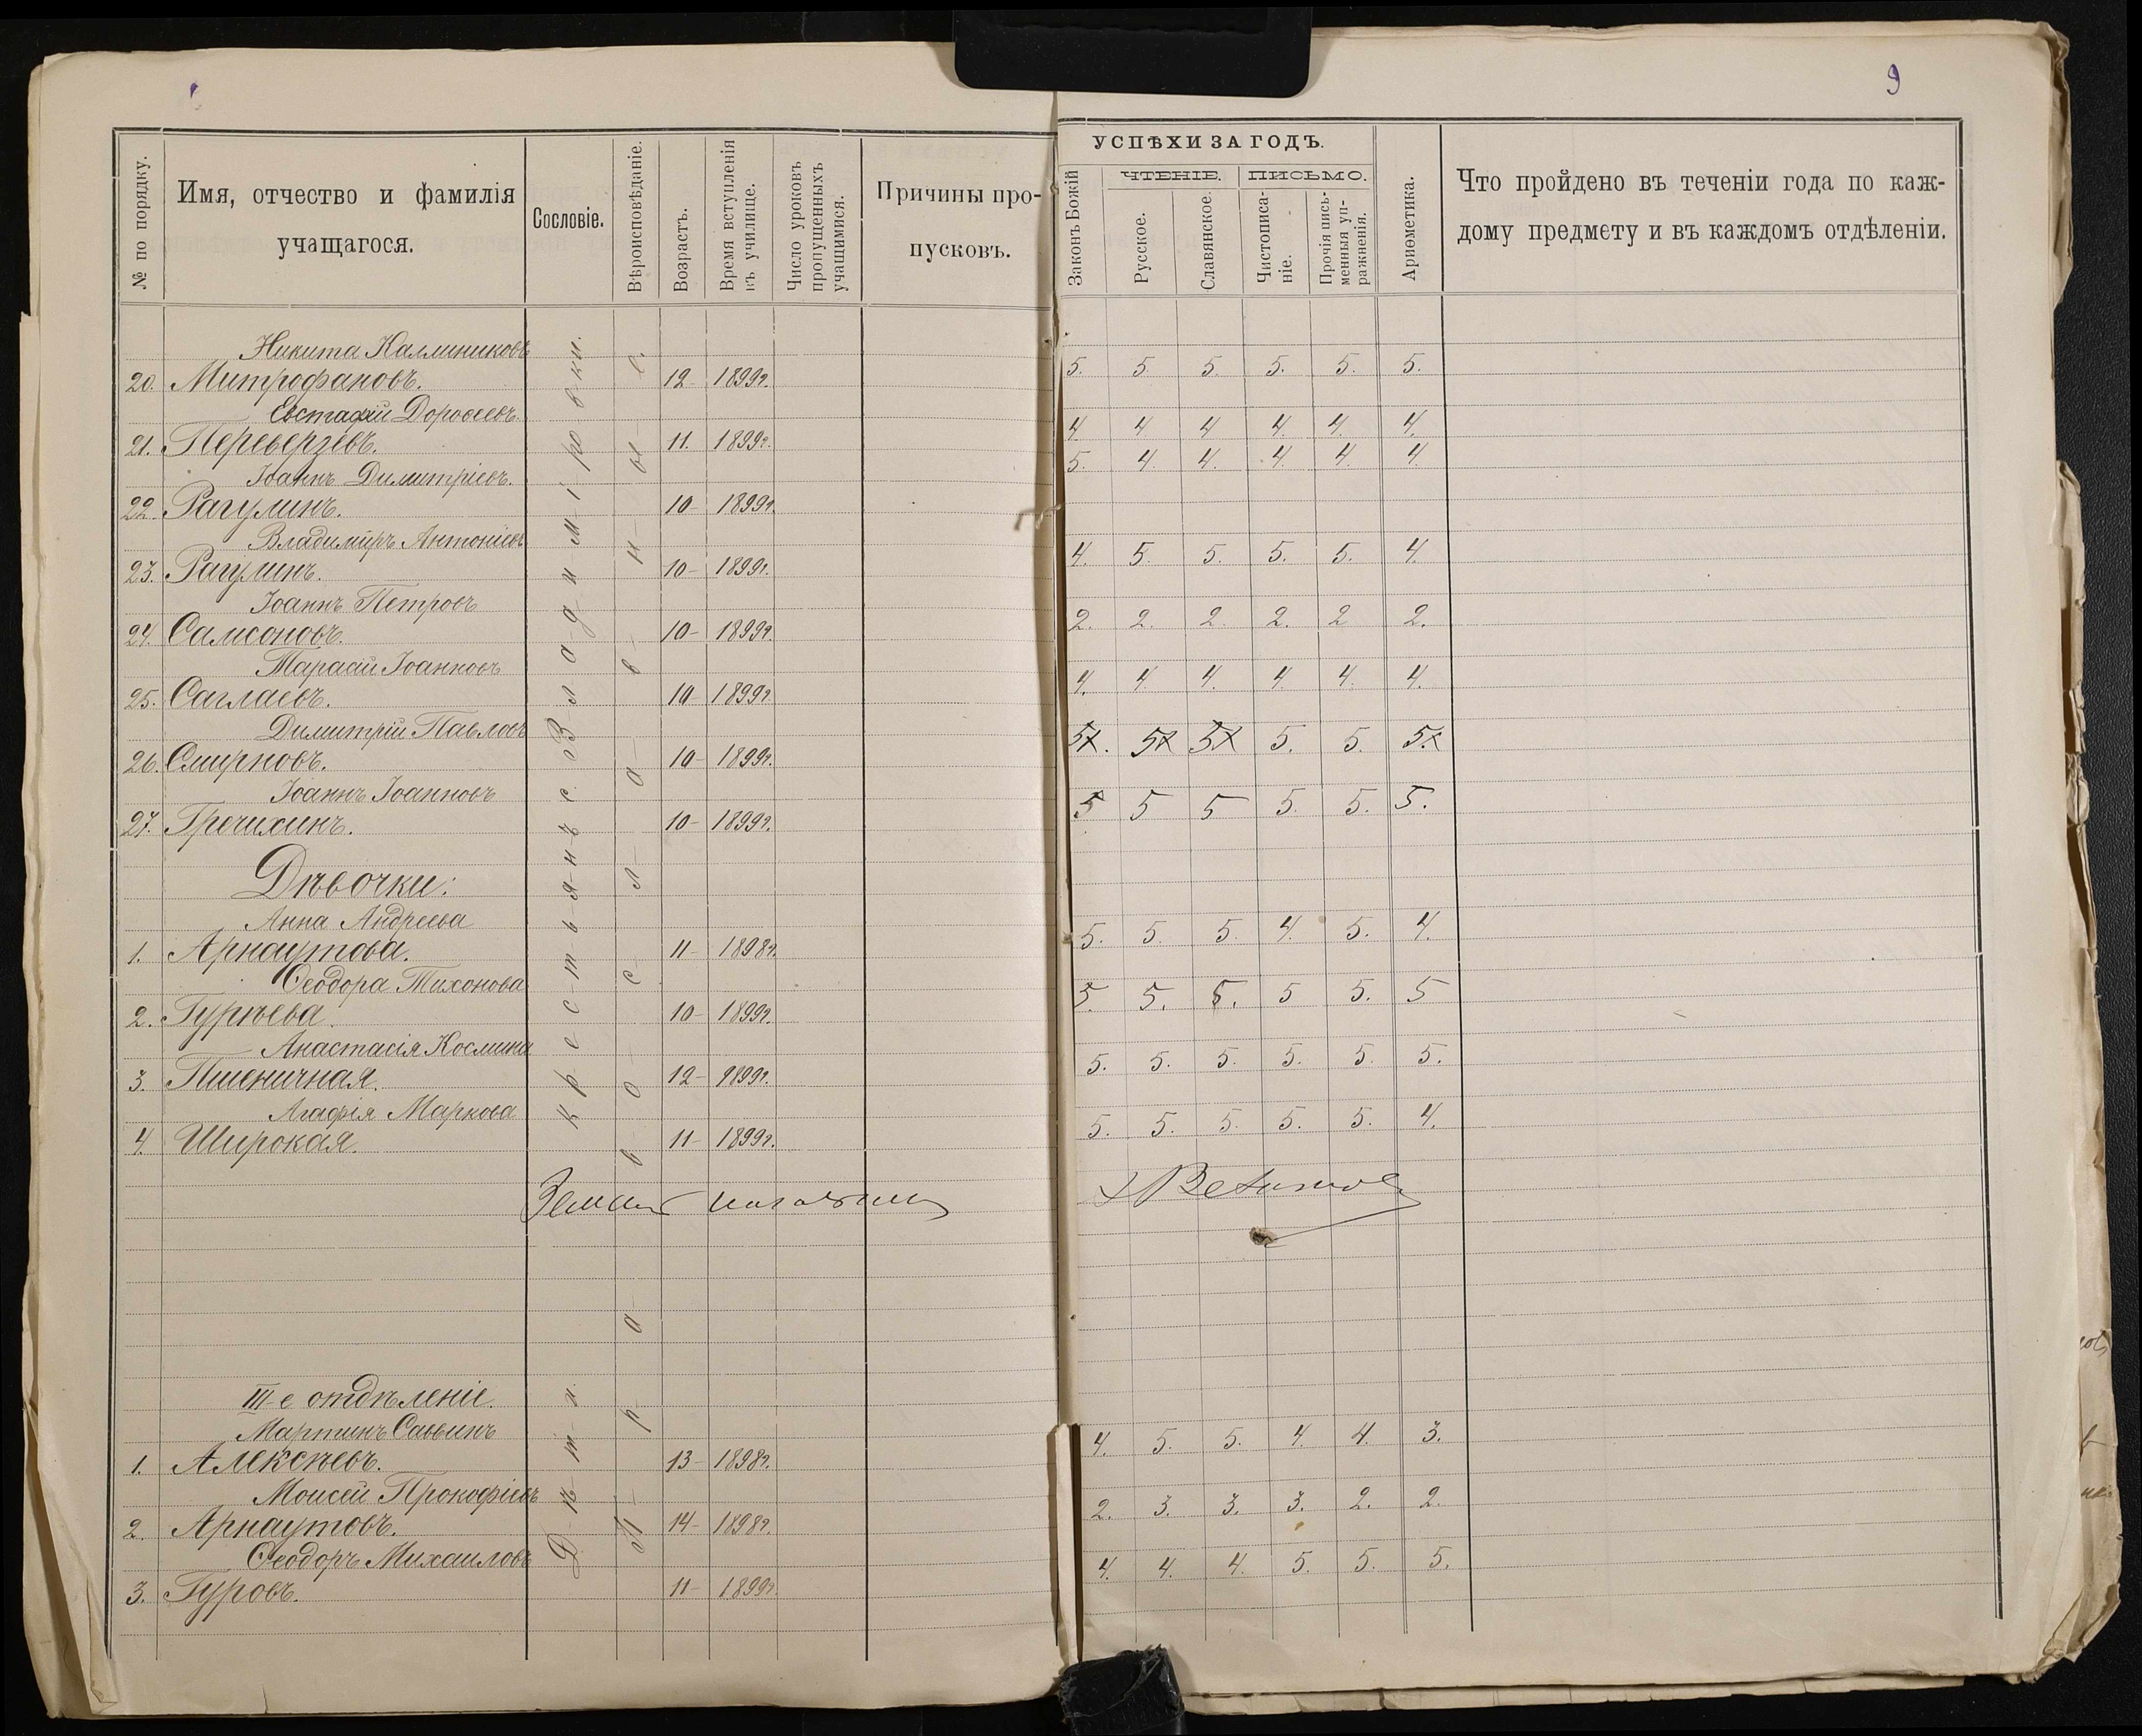 9
№ по порядку.
Имя, отчество и фамилія учащагося.
Сословіе.
Вѣроисповѣданіе.
Возрастъ.
Время вступленія въ училище.
Число уроковъ пропущенныхъ учащимися.
Причины про-
пусковъ.
УСПѢХИ ЗА ГОДЪ.
Законъ Божій
ЧТЕНІЕ.
Русское.
Славянское.
ПИСЬМО.
Чистописа-
ніе.
Прочія пись-
менныя уп-
ражненія.
Ариѳметика.
Что пройдено въ теченіи года по каж-
дому предмету и въ каждомъ отдѣленіи.
Никита Калиниковъ
5. 5 5. 5. 5. 5.
20. Митрофановъ. 12 1899г.
Евстафій Дороѳеевъ
4 4 4 4. 4. 4.
21. Переверзевъ. 11. 1899г.
5. 4. 4. 4. 4. 4
Іоаннъ Димитріевъ.
22. Рагулинъ. 10 1899г.
Владиміръ Антоніевъ
4. 5. 5. 5. 5. 4.
23. Рагулинъ. 10 1899г.
Іоаннъ Петровъ
2. 2. 2. 2. 2 2.
24. Самсоновъ. 10 1899г.
Тарасій Іоанновъ
4. 4 4. 4 4. 4.
25. Саглаевъ. 10 1899г
Димитрій Павловъ
5. 5 5 5. 5. 5.
26. Смирновъ. 10 1899г.
Іоаннъ Іоанновъ
5 5 5 5. 5. 5.
27. Гречихинъ. 10 1899г.
Дѣвочки:
Анна Андреева
5. 5. 5. 4. 5. 4.
1. Арнаутова. 11 1898г.
Ѳеодора Тихонова
5. 5. 5. 5 5. 5
2. Гурьева. 10 1899г.
Анастасія Космина
5. 5. 5. 5. 5. 5.
3. Пшеничная. 12 1899г.
Агафія Маркова
5. 5. 5. 5. 5. 4.
4. Широкая. 11 1899г.
Крестьянъ с. Владиміровки.
Православные.
III-е отдѣленіе.
Мартинъ Саввинъ
4. 5. 5. 4. 4. 3.
1. Алексѣевъ. 13 1898г.
Моисей Прокофіевъ
2. 3. 3. 3. 2. 2.
2. Арнаутовъ. 14 1898г.
Ѳеодоръ Михаиловъ
4. 4. 4. 5. 5. 5.
3. Гуровъ. 11 1899г.
Дѣти